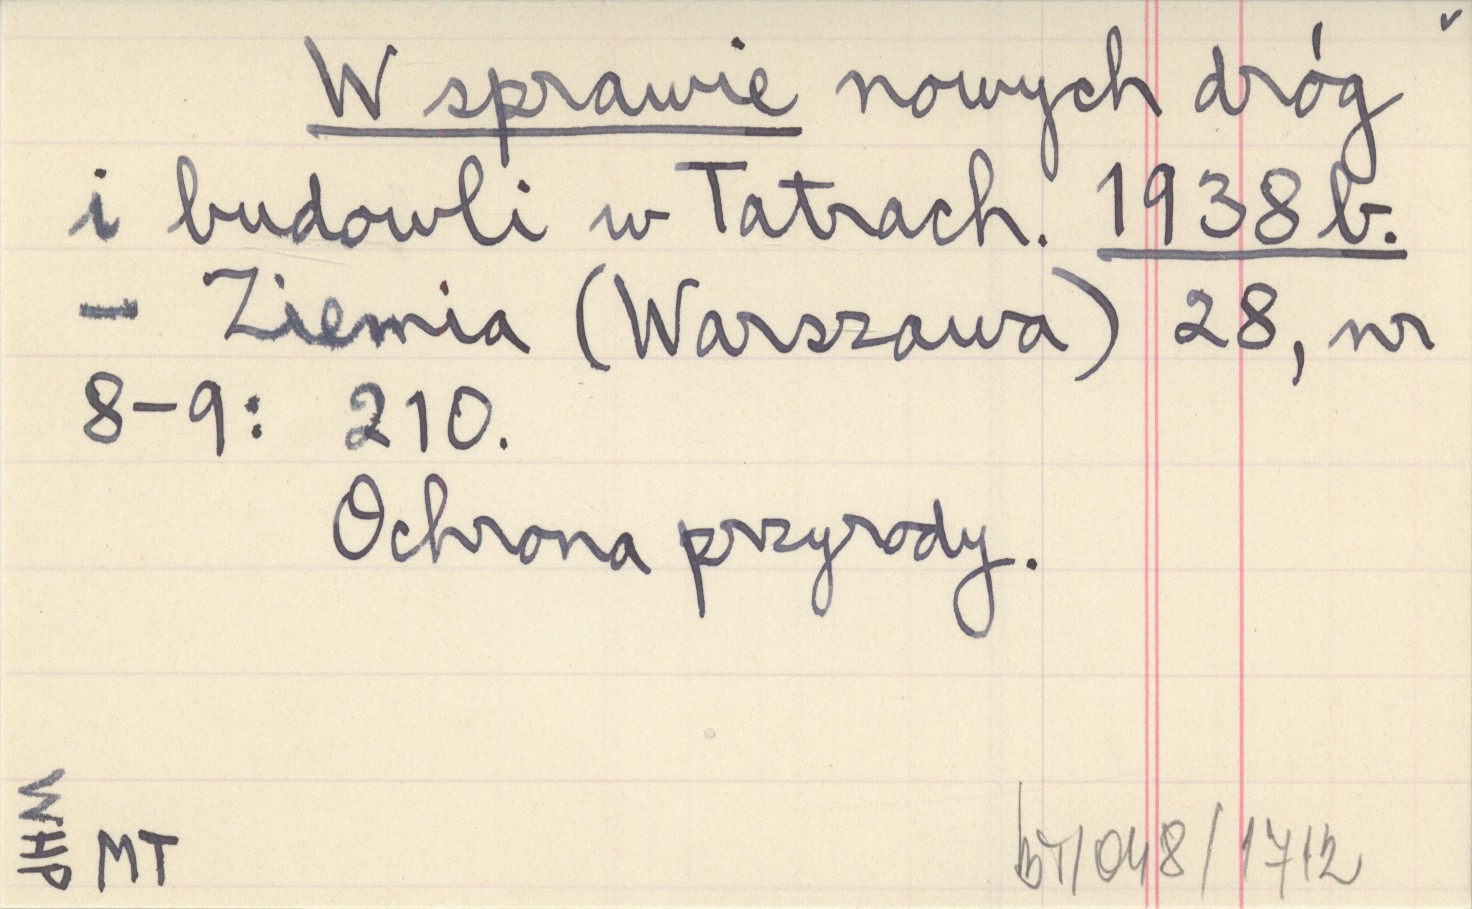 W sprawie nowych dróg
i budowli w Tatrach. 1938 b.
- Ziemia (Warszawa) 28, nr
8-9: 210.
Ochrona przyrody.
WHP
MT
bT/048/1712